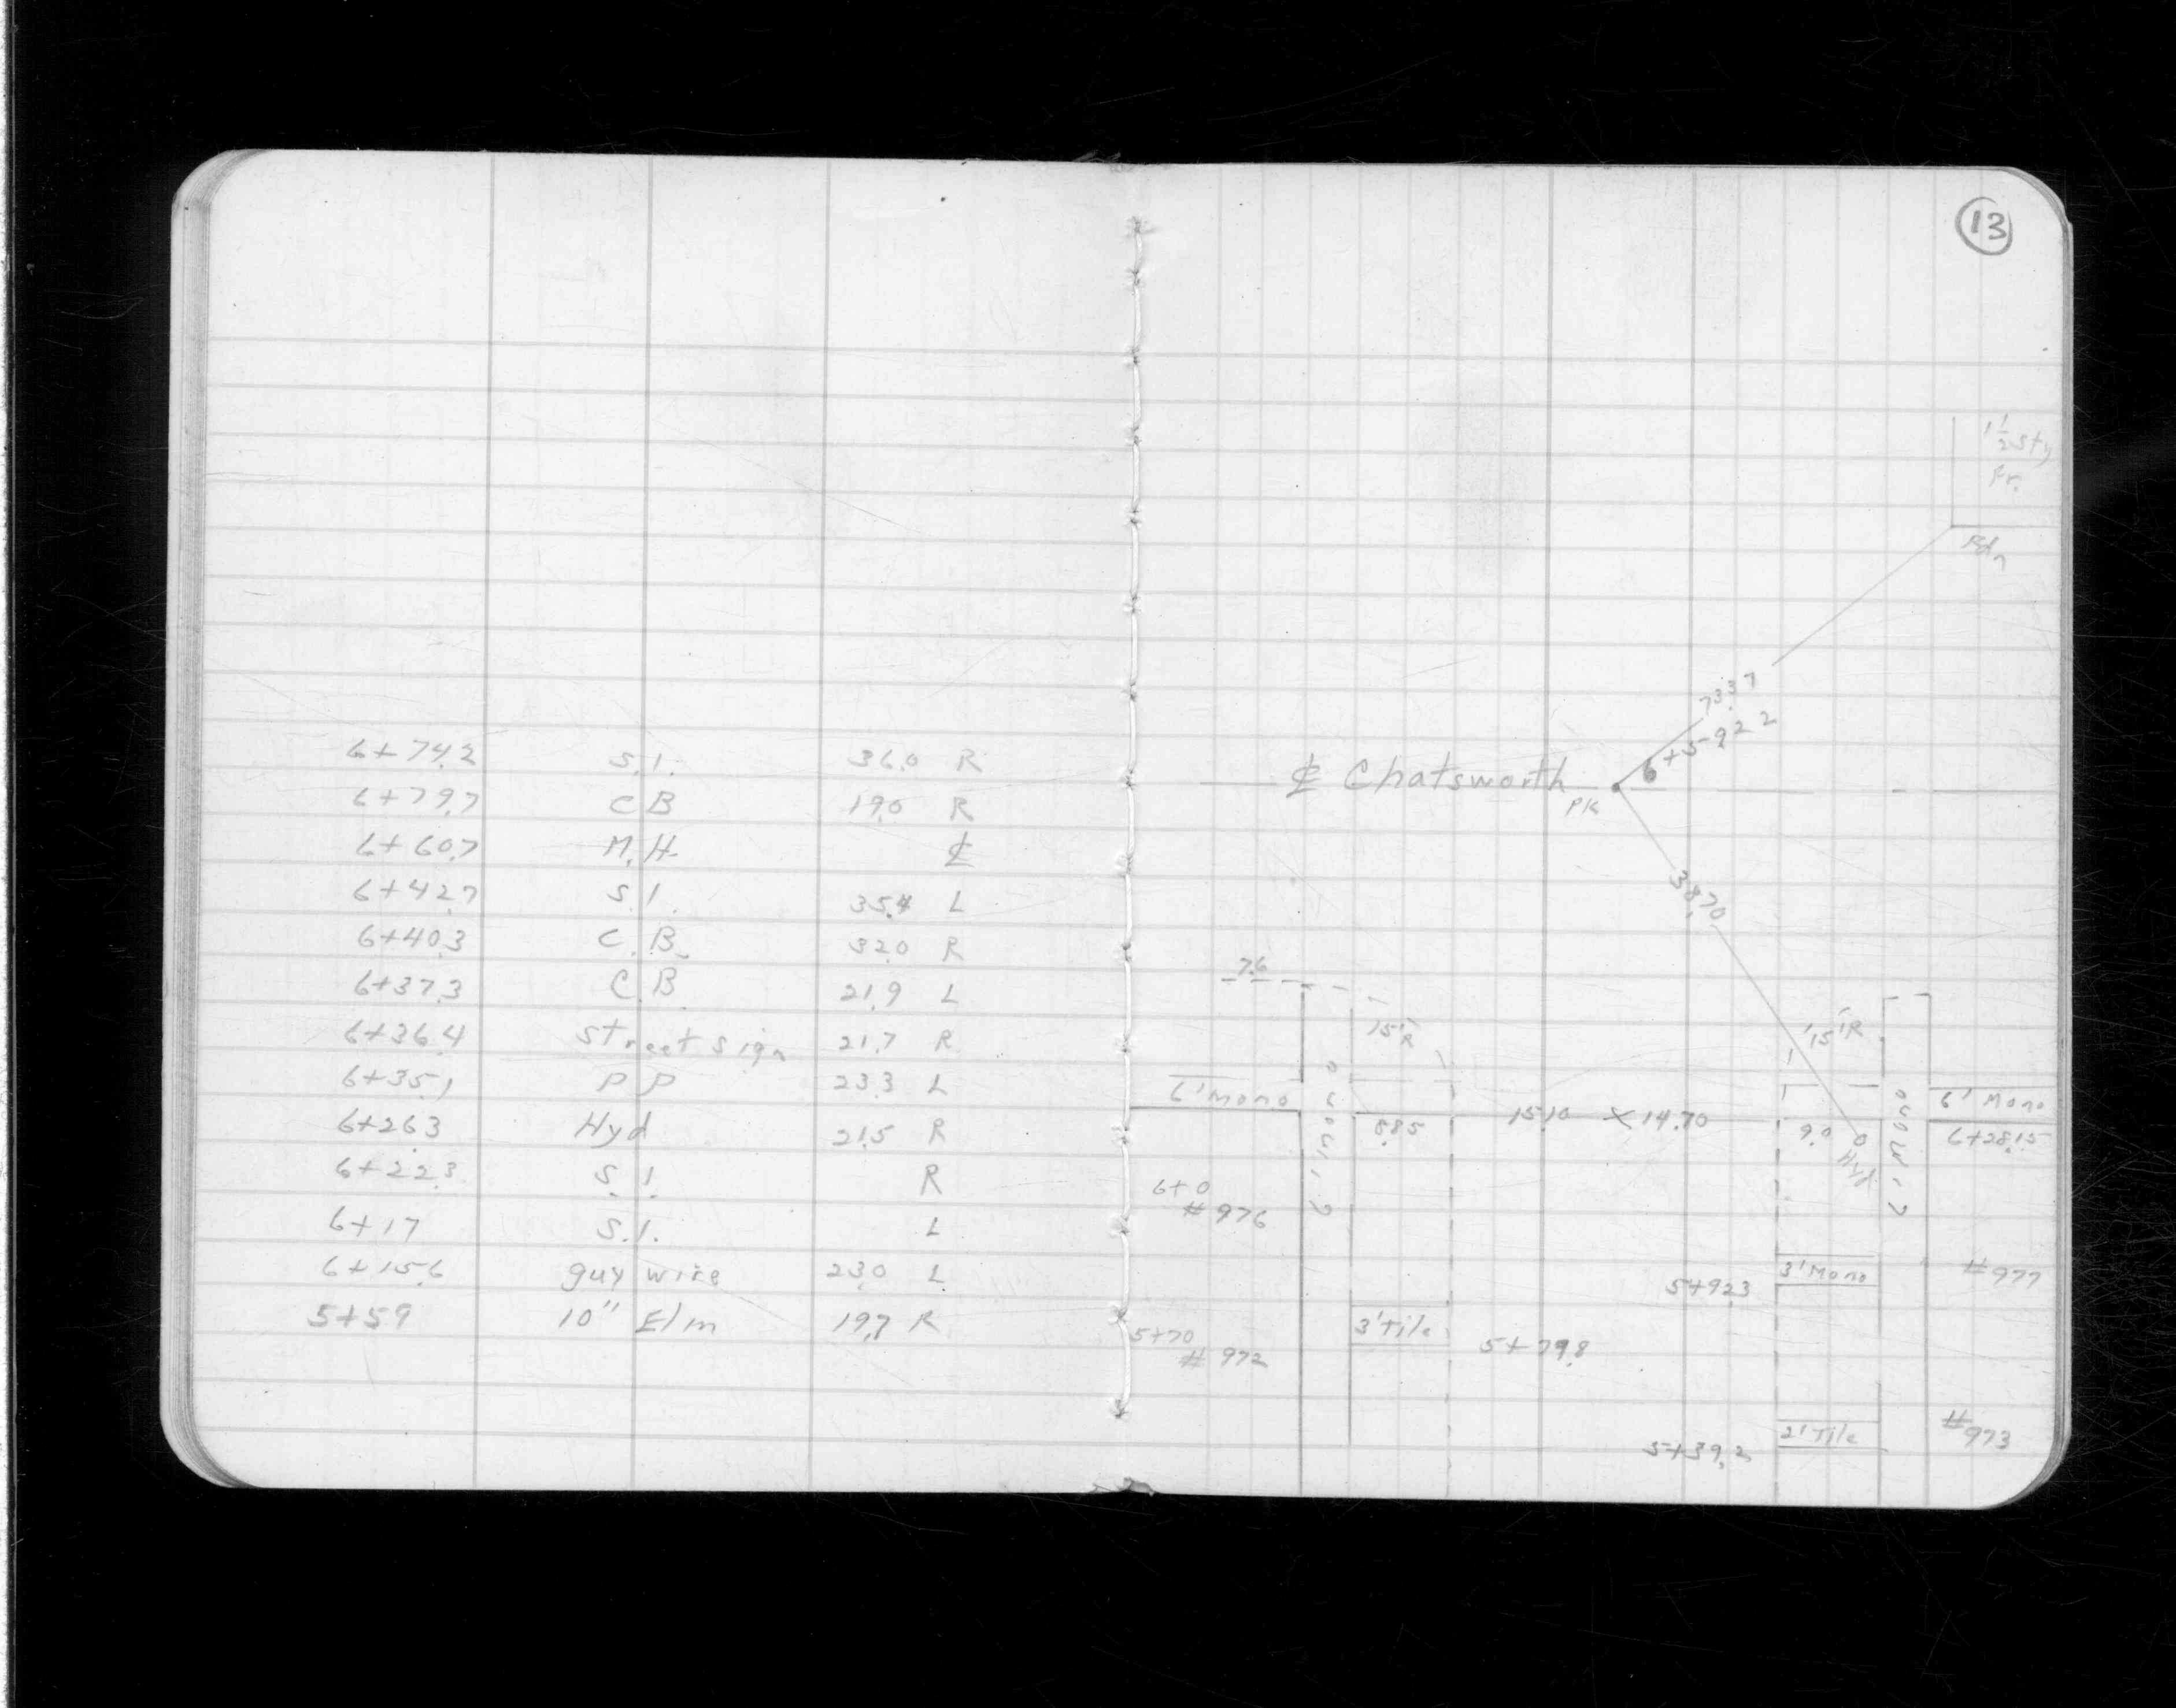 6+74.2 S.I. 36.0 R
6+79.7 CB 19.0 R
6+60.7 M.H. ℄
6+42.7 S.I. 35.4 L
6+40.3 C.B. 32.0 R
6+37.3 C.B. 21.9 L
6+36.4 Street Sign 21.7 R
6+35.1 PP 23.3 L
6+26.3 Hyd 21.5 R
6+22.3 S.I. R
6+17 S.I. L
6+15.6 guy wire 23.0 L
5+59 10" Elm 19.7 R
13
1 1/2 Sty
Fr.
73.37
6+59.22
℄ Chatsworth
PK
38.70
7.6
15'R
15'R
6' Mono
6' Mono
5' Mono
5' Mono
8.85
15.10 × 14.70
9.0
Hyd
6+28.15
6+0
# 976
3' Mono
# 977
5+92.3
3' Tile
5+70
# 972
5+79.8
2' Tile
# 973
5+39.2